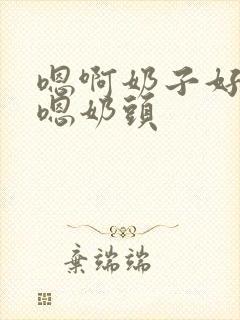 嗯啊奶子好
嗯奶頭
棄端端